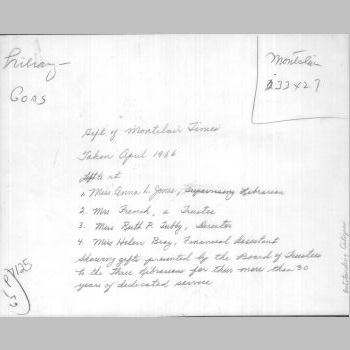 Library -
Montclair
32427
Gift of Montclair Times
Taken April 1966
L to R
1. Miss Anna L. Jones, Supervising Librarian
2. Mrs French, a Trustee
3. Miss Ruth P. Tubby, Director
4. Miss Helen Bray, Financial Assistant
Showing gifts presented by the Board of Trustees
to the three librarians for their more than 30
years of dedicated service